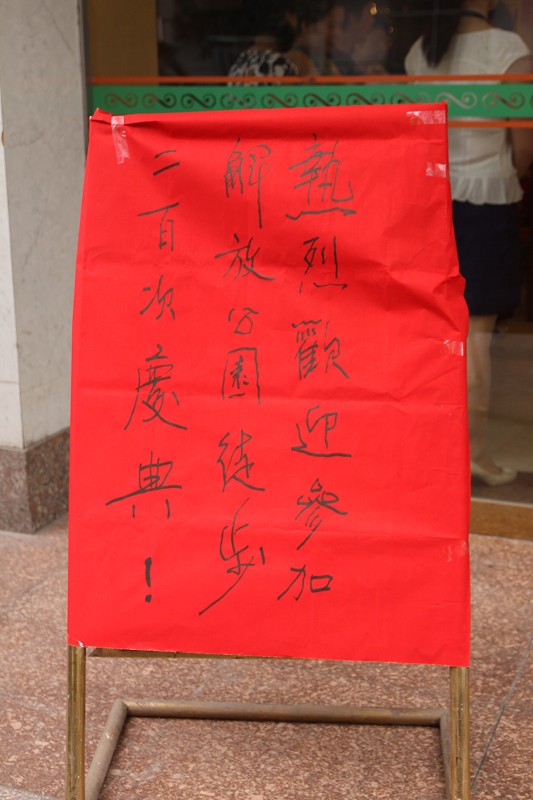 熱烈歡迎參加
解放公園徒步
二百次慶典!